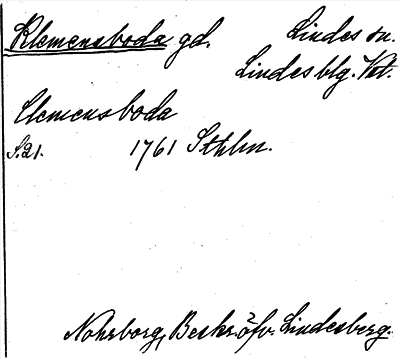 Klemensboda gd. Lindes sn.
Lindesblg. Vstm.
Clemensboda
S.21. 1761 Sthlm.
Nohrborg, Beskr. öfv. Lindesberg.